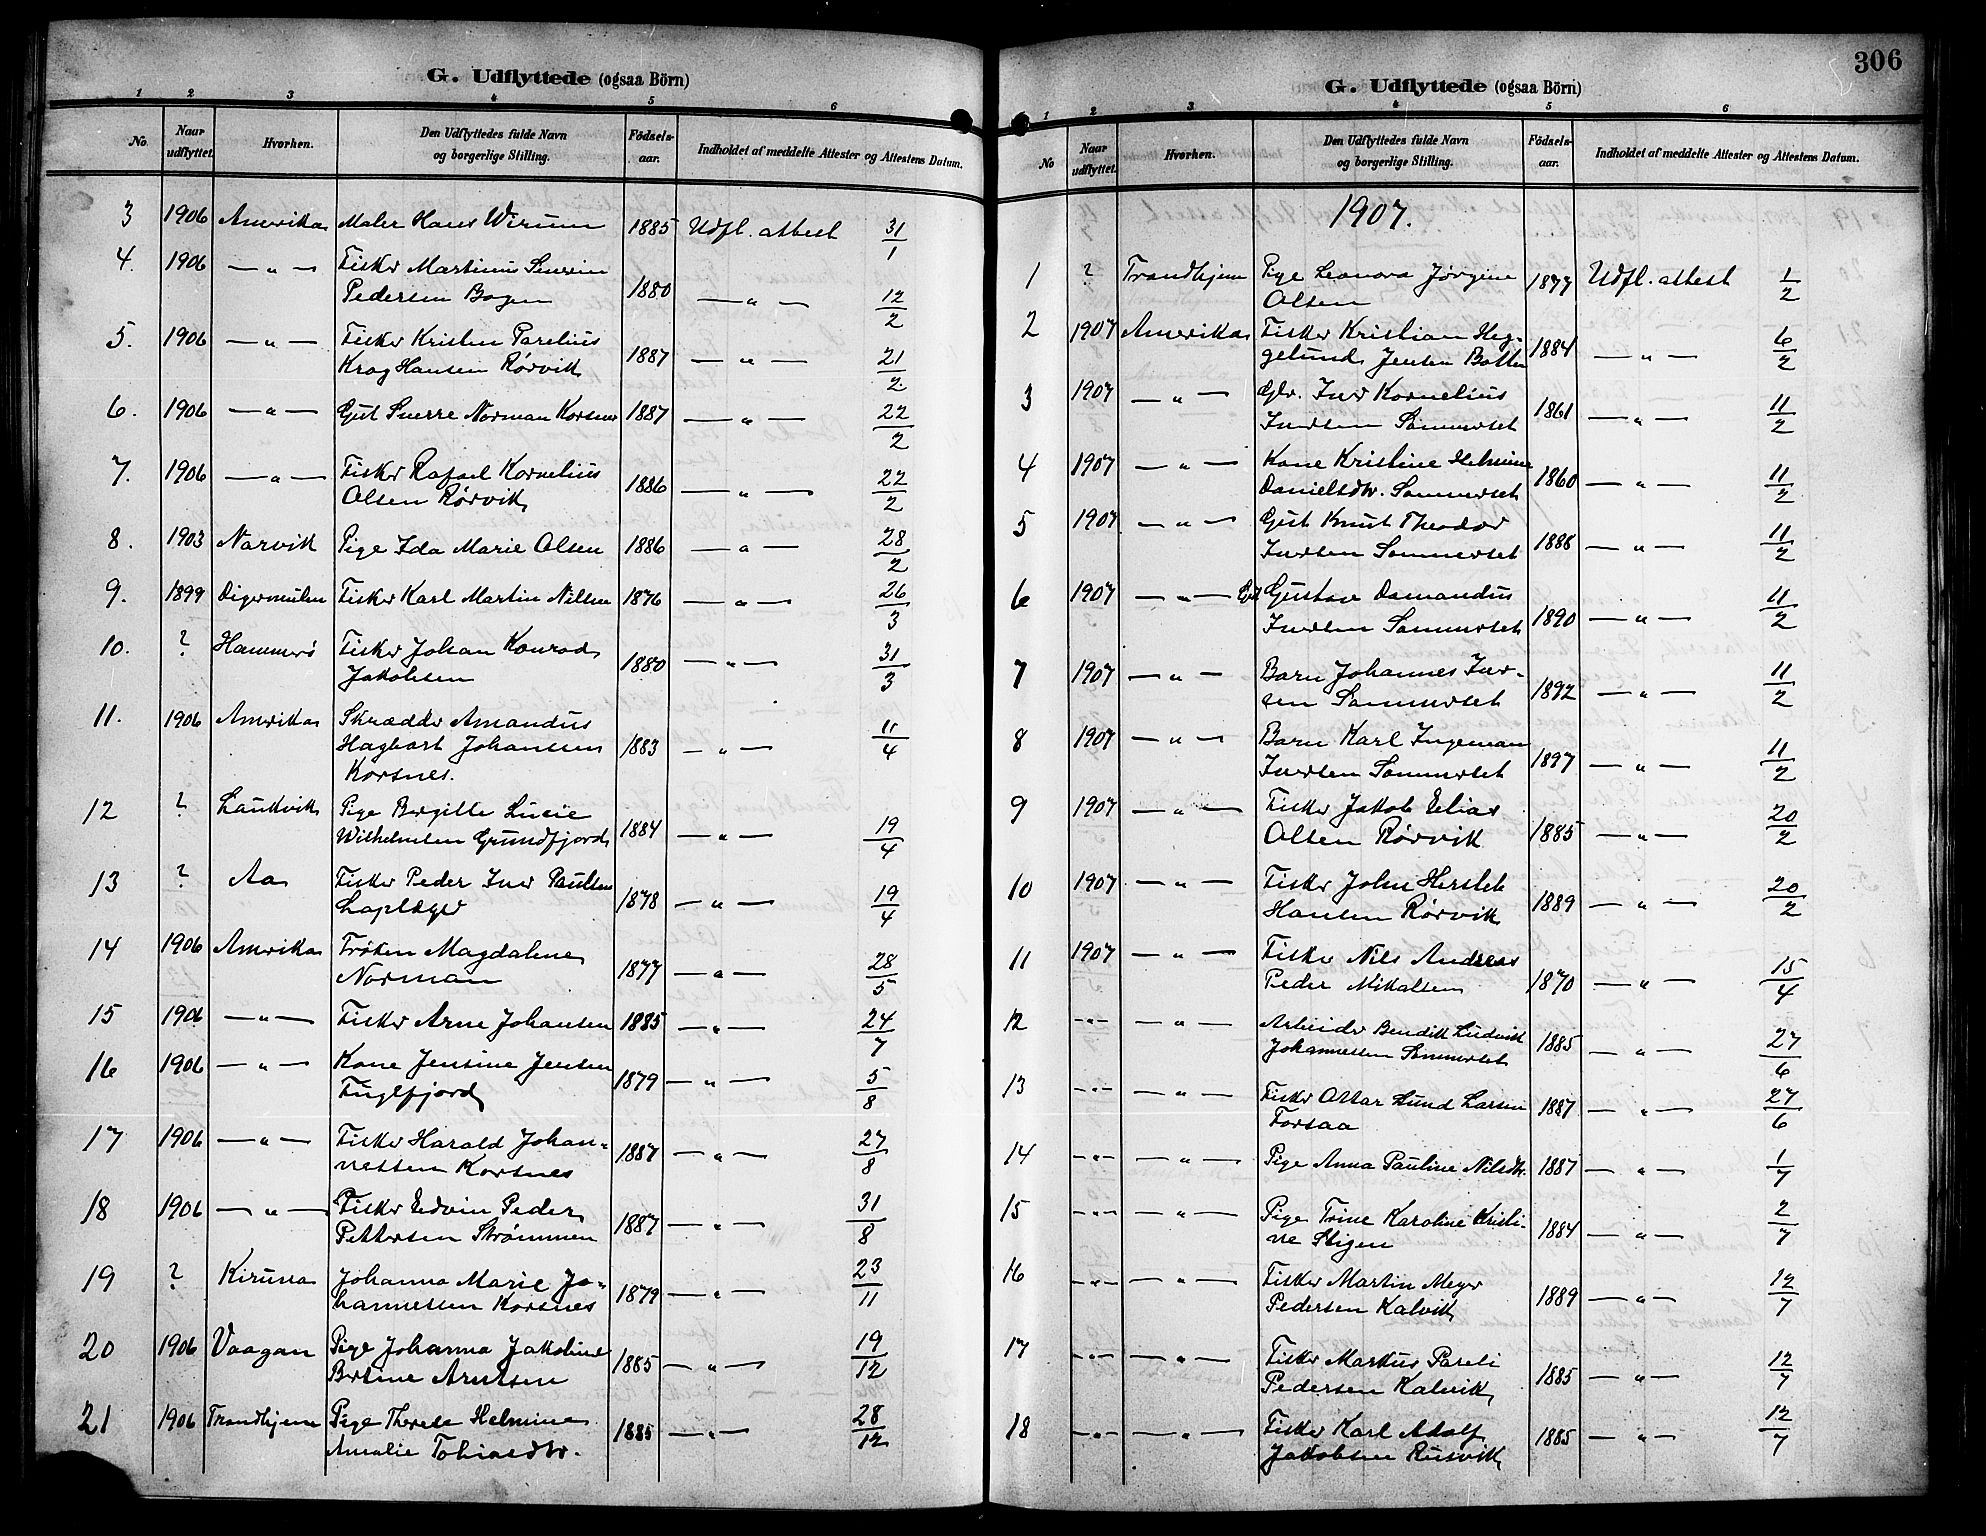 G. Udflyttede (ogsaa Börn)
1 2 3 4 5 6
No. Naar udflyttet. Hvorhen. Den Udflyttedes fulde Navn og borgerlige Stilling. Fødsels-aar. Indholdet af meddelte Attester og Attestens Datum.
3 1906 Amerika Maler Hans Wirum 1885 Udfl. attest 31/1
4. 1906 —"— Fisker Martinus Severin
Pedersen Bogen 1880 —"— 12/2
5. 1906 —"— Fisker Kristen Parelius
Krog Hansen Rørvik 1887 —"— 21/2
6. 1906 —"— Gut Sverre Norman Korsnes 1887 —"— 22/2
7. 1906 —"— Fisker Rafael Kornelius
Olsen Rørvik 1886 —"— 22/2
8. 1903 Narvik Pige Ida Marie Olsen 1886 —"— 28/2
9. 1899 Digermulen Fisker Karl Martin Nilsen 1876 —"— 26/3
10. ? Hammerø Fisker Johan Konrad
Jakobsen 1880 —"— 31/3
11. 1906 Amerika Skrædder Amandus
Hagbart Johansen 1883 —"— 11/4
Korsnes.
12 ? Laukvik Pige Bergitte Lucie
Wilhelmsen Grundfjord 1884 —"— 19/4
13 ? Aa Fisker Peder Iver Paulsen
Laplæger 1878 —"— 19/4
14 1906 Amerika Frøken Magdalene
Norman 1877 —"— 28/5
15 1906 —"— Fisker Arne Johansen 1885 —"— 24/7
16 1906 —"— Kone Jensine Jensen
Fuglfjord 1879 —"— 5/8
17 1906 —"— Fisker Harald Johan-
nessen Korsnes 1887 —"— 27/8
18 1906 —"— Fisker Edvin Peder
Pettersen Strømmen 1887 —"— 31/8
19 ? Kiruna Johanna Marie Jo-
hannessen Korsnes 1879 —"— 23/11
20 1906 Vaagan Pige Johanna Jakobine
Bertine Arntsen 1885 —"— 19/12
21 1906 Trondhjem Pige Therese Helmine
Amalie Tobiasdtr. 1885 —"— 28/12
306
G. Udflyttede (ogsaa Börn)
1 2 3 4 5 6
No Naar udflyttet. Hvorhen. Den Udflyttedes fulde Navn og borgerlige Stilling. Fødsels-aar. Indholdet af meddelte Attester og Attestens Datum.
1907.
1 ? Trondhjem Pige Leonora Jørgine
Olsen 1877 Udfl. attest 1/2
2 1907 Amerika Fisker Kristian Heg-
gelund Jensen Botten 1884 —"— 6/2
3 1907 —"— Gbr. Iver Kornelius
Iversen Sommerset 1861 —"— 11/2
4 1907 —"— Kone Kristine Helmine
Danielsdtr. Sommerset 1860 —"— 11/2
5 1907 —"— Gut Knut Theodor
Iversen Sommerset 1888 —"— 11/2
6 1907 —"— Gut Gustav Damandus
Iversen Sommerset 1890 —"— 11/2
7 1907 —"— Barn Johannes Iver-
sen Sommerset 1892 —"— 11/2
8 1907 —"— Barn Karl Ingeman
Iversen Sommerset 1897 —"— 11/2
9 1907 —"— Fisker Jakob Elias
Olsen Rørvik 1885 —"— 20/2
10 1907 —"— Fisker John Hersleb
Hansen Rørvik 1889 —"— 20/2
11 1907 —"— Fisker Nils Andreas
Peder Mikalsen 1870 —"— 15/4
12 —"— —"— Arbeider Bendik Ludvik
Johannessen Sommerset 1885 —"— 27/6
13 —"— —"— Fisker Ottar Lund Larsen
Forsaa 1887 —"— 27/6
14 —"— —"— Pige Anna Pauline Nilsdtr. 1887 —"— 1/7
15 —"— —"— Pige Trine Karoline Kristi-
ne Stigen 1884 —"— 2/7
16 —"— —"— Fisker Martin Meyer
Pedersen Kalvik 1889 —"— 12/7
17 —"— —"— Fisker Markus Pareli
Pedersen Kalvik 1885 —"— 12/7
18 —"— —"— Fisker Karl Adolf
Jakobsen Rusvik 1885 —"— 12/7